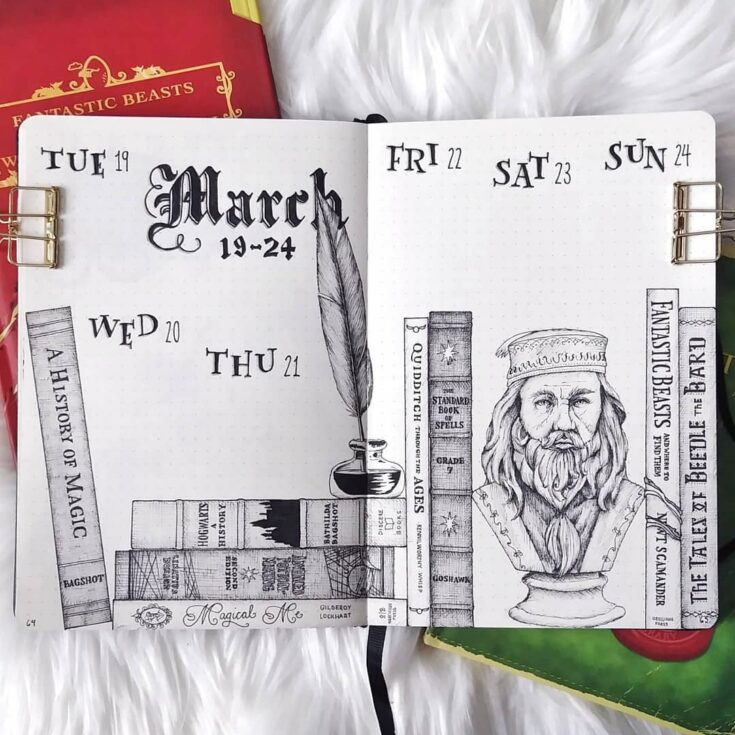 FANTASTIC BEASTS
TUE 19
March
19-24
WED 20
THU 21
FRI 22
SAT 23
SUN 24
A HISTORY OF MAGIC
BAGSHOT
HOGWARTS
A HISTORY
BATHILDA
BAGSHOT
SECOND
EDITION
Magical Me
GILDEROY
LOCKHART
BOOKS
QUIDDITCH THROUGH THE AGES
KENNILWORTHY WHISP
THE
STANDARD
BOOK
OF
SPELLS
GRADE
7
GOSHAWK
FANTASTIC BEASTS AND WHERE TO
FIND THEM
NEWT SCAMANDER
PRESS
THE TALES OF BEEDLE THE BARD
64
65